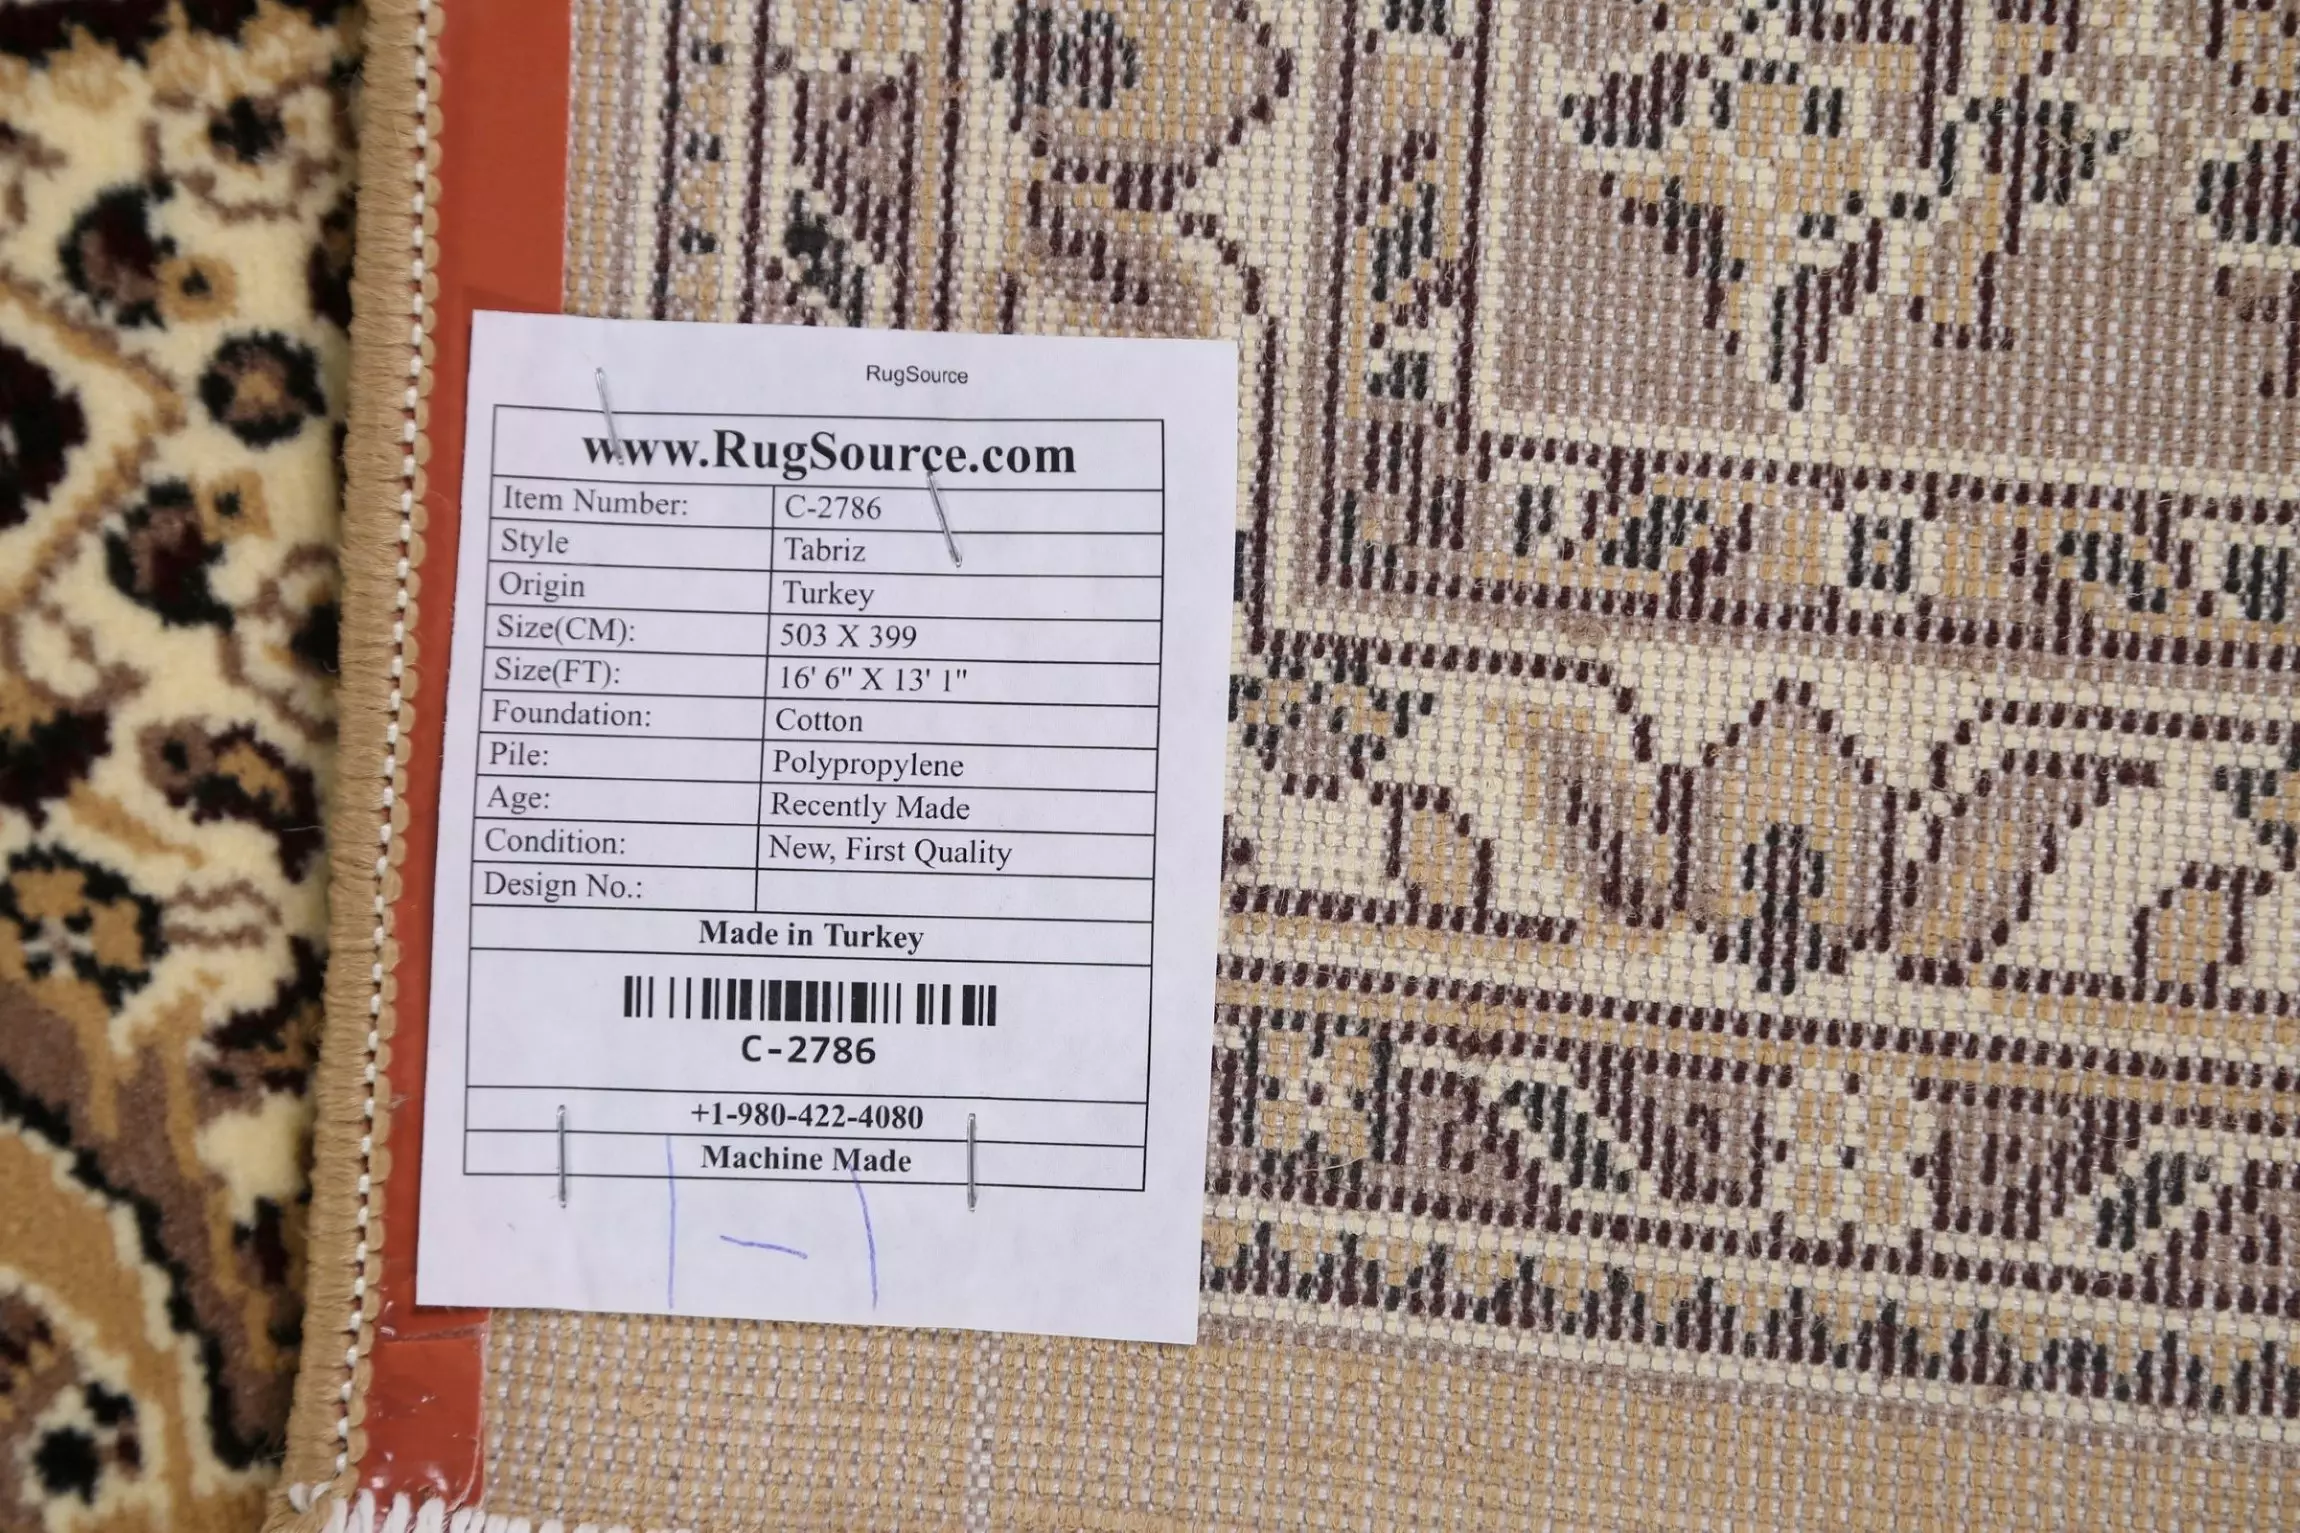 RugSource
www.RugSource.com
Item Number: C-2786
Style Tabriz
Origin Turkey
Size(CM): 503 X 399
Size(FT): 16' 6" X 13' 1"
Foundation: Cotton
Pile: Polypropylene
Age: Recently Made
Condition: New, First Quality
Design No.:
Made in Turkey
C-2786
+1-980-422-4080
Machine Made